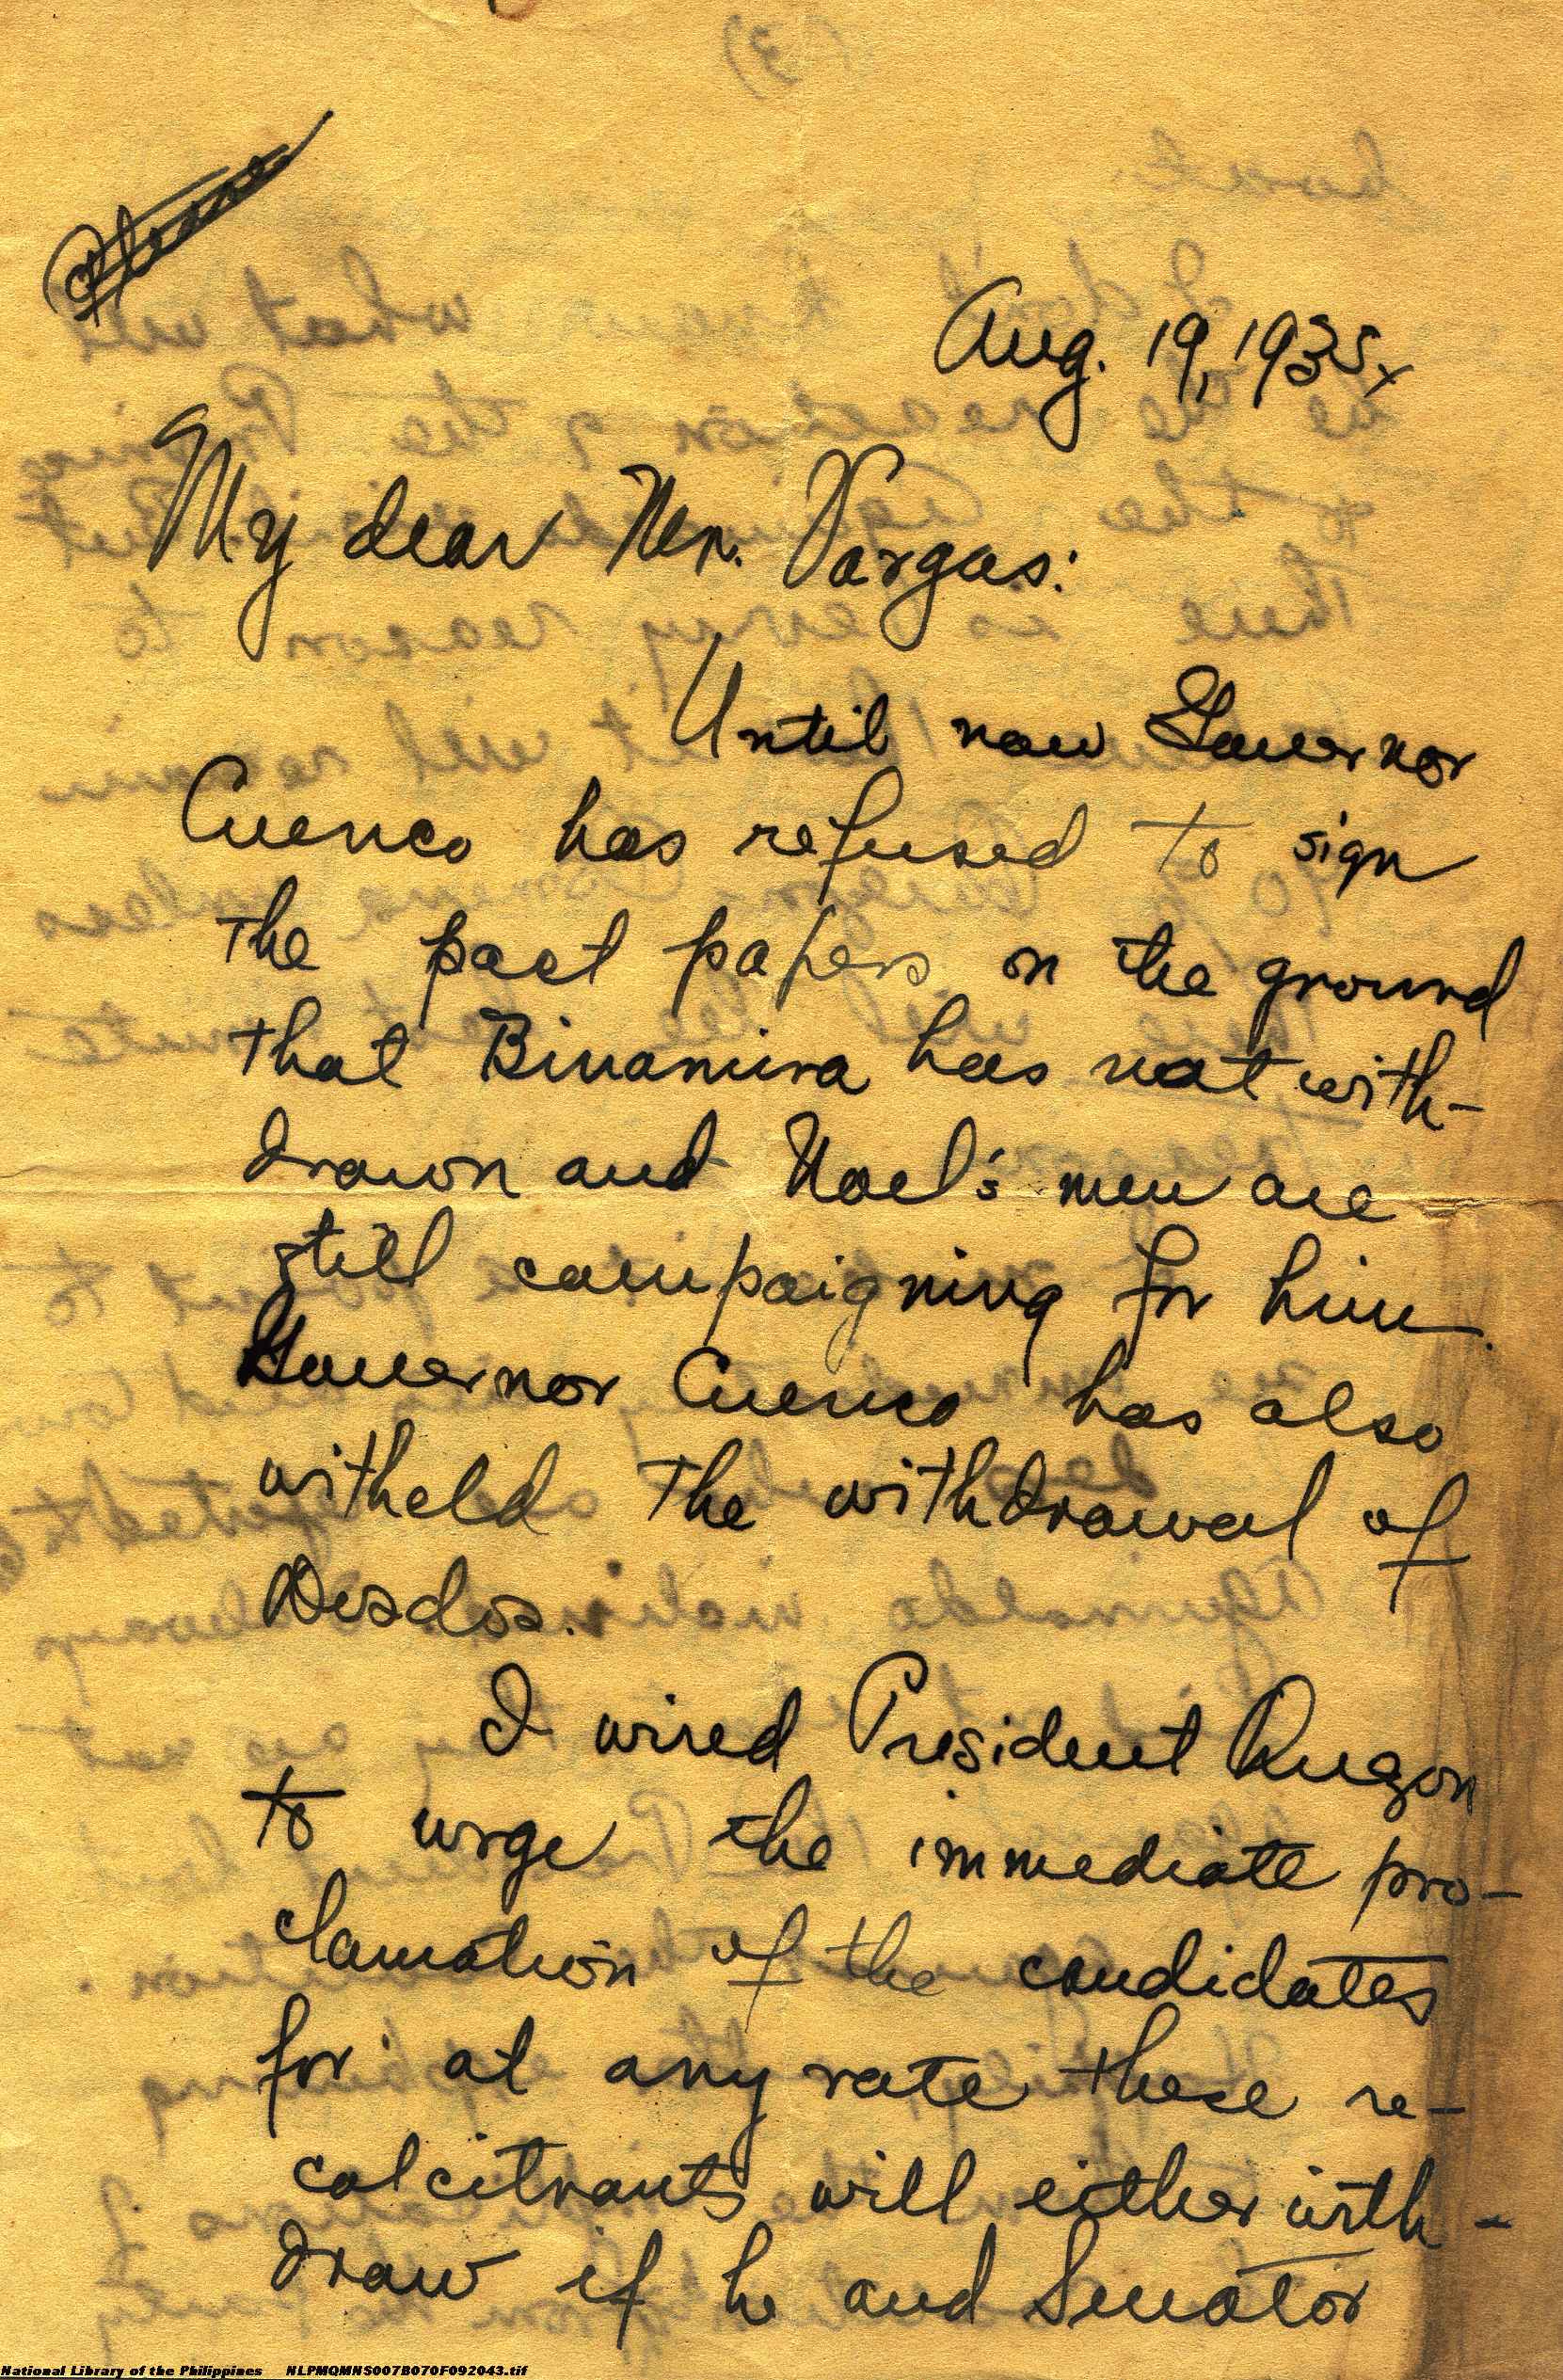 Aug. 19, 1935
My dear Mr. Vargas:
Until now Governor
Cuenco has refused to sign
the pact papers on the ground
that Binamira has not with-
drawn and Noel's men are
still campaigning for him.
Governor Cuenco has also
witheld the withdrawal of
I wired President Quezon
to urge the immediate pro-
clamation of the candidates
for at any rate these re-
calcitrants will either with-
draw if he and Senator
National Library of the Philippines NLPMQMNS007B070F092043.tif